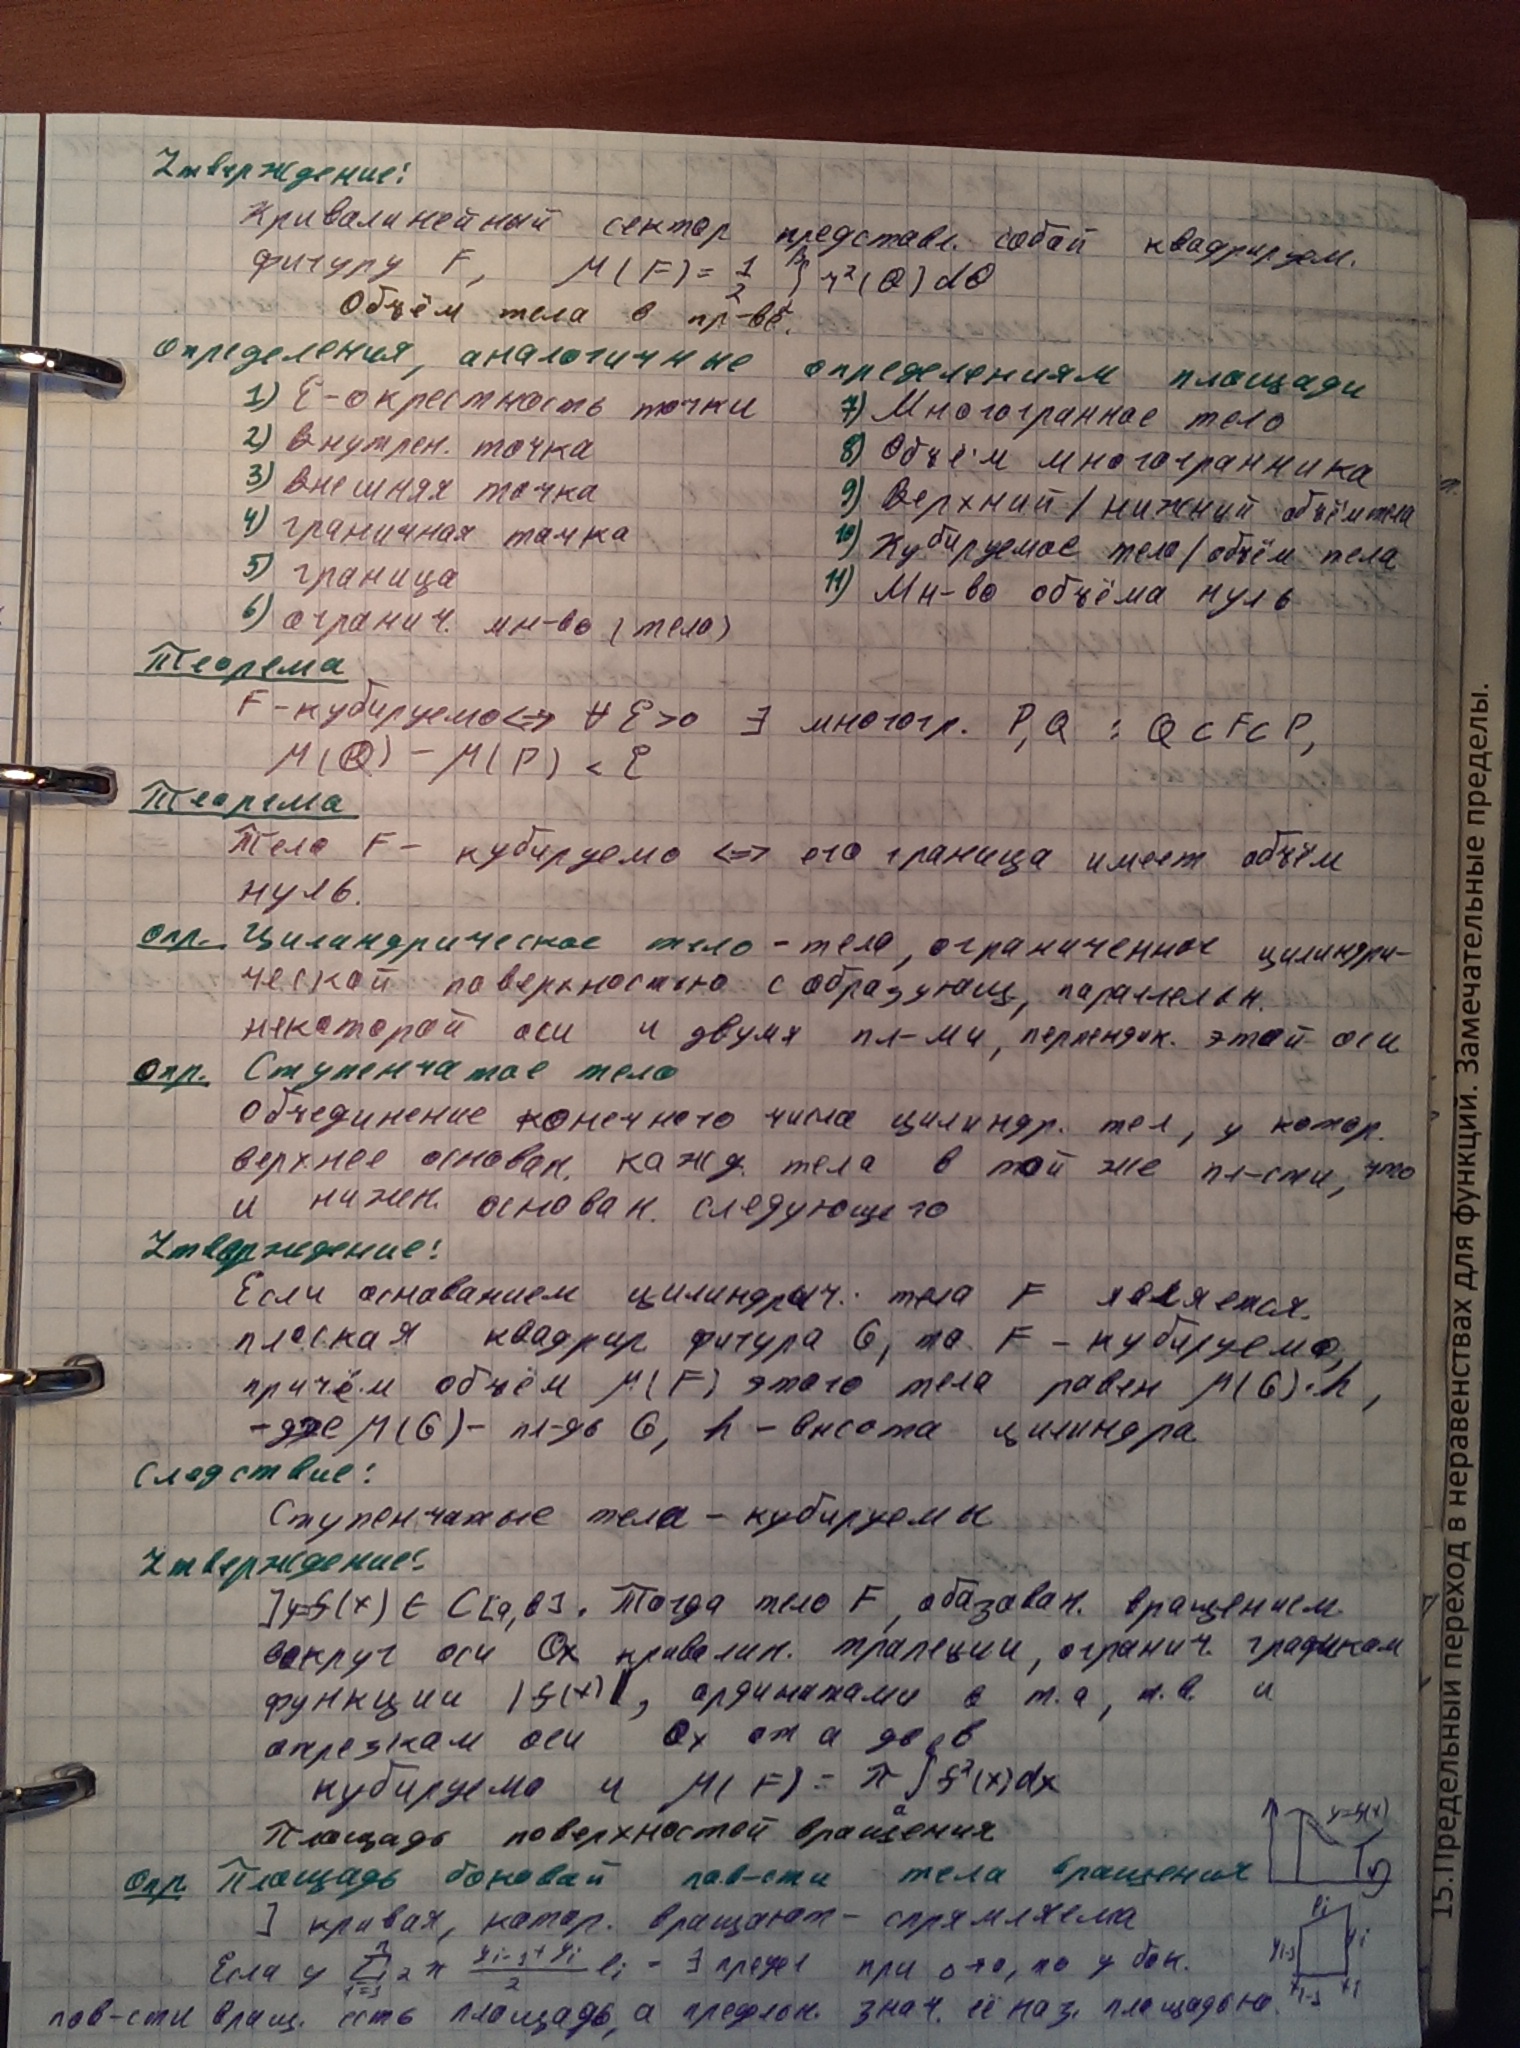 Утверждение:
Кривалинейный сектор представл. собой квадрируем.
фигуру F, μ(F) = 1/2 ∫ r²(Θ) dΘ
Объём тела в пр-ве.
Определения, аналогичные определениям площади
1) Ɛ-окрестность точки
2) внутрен. точка
3) внешняя точка
4) граничная точка
5) граница
6) огранич. мн-во (тело)
7) Многогранное тело
8) Объём многогранника
9) Верхний/нижний объём тела
10) Кубируемое тело/объём тела
11) Мн-во объёма нуль
Теорема
F-кубируемо <=> ∀ Ɛ>0 ∃ многогр. P,Q : Q⊂F⊂P,
μ(Q) - μ(P) < Ɛ
Теорема
Тело F- кубируемо <=> его граница имеет объём
нуль.
Опр. Цилиндрическое тело - тело, ограниченное цилиндри-
ческой поверхностью с образующ, параллельн.
некоторой оси и двумя пл-ми, перпендик. этой оси
Опр. Ступенчатое тело
Объединение конечного числа цилиндр. тел, у котор.
верхнее основан. кажд. тела в той же пл-сти, что
и нижн. основан. следующего
Утверждение:
Если основанием цилиндрич. тела F является
плоская квадрир фигура G, то F - кубируемо,
причём объём μ(F) этого тела равен μ(G)·h,
-где μ(G)- пл-дь G, h - высота цилиндра
Следствие:
Ступенчатые тела - кубируемы
Утверждение:
] y=f(x) ∈ C[a,b]. Тогда тело F, обазован. вращением
вокруг оси Ox кривалин. трапеции, огранич. графикам
функции |f(x)|, ординатами в т.a, т.b и
отрезкам оси Ox от a до b
кубируемо и μ(F) = π ∫ₐᵇ f²(x)dx
Площадь поверхностей вращения
y=f(x)
Опр Площадь боковай пов-сти тела вращения
] кривая, котор. вращают - спрямляема
lᵢ
yᵢ₋₁ yᵢ
xᵢ₋₁ xᵢ
Если у ∑ᵢ₌₁ⁿ 2π (yᵢ₋₁+yᵢ)/2 lᵢ - ∃ предел при Δ→0, то у бок.
пов-сти вращ. есть площадь, а предельн. знач. её наз. площадью.
15.Предельный переход в неравенствах для функции. Замечательные пределы.